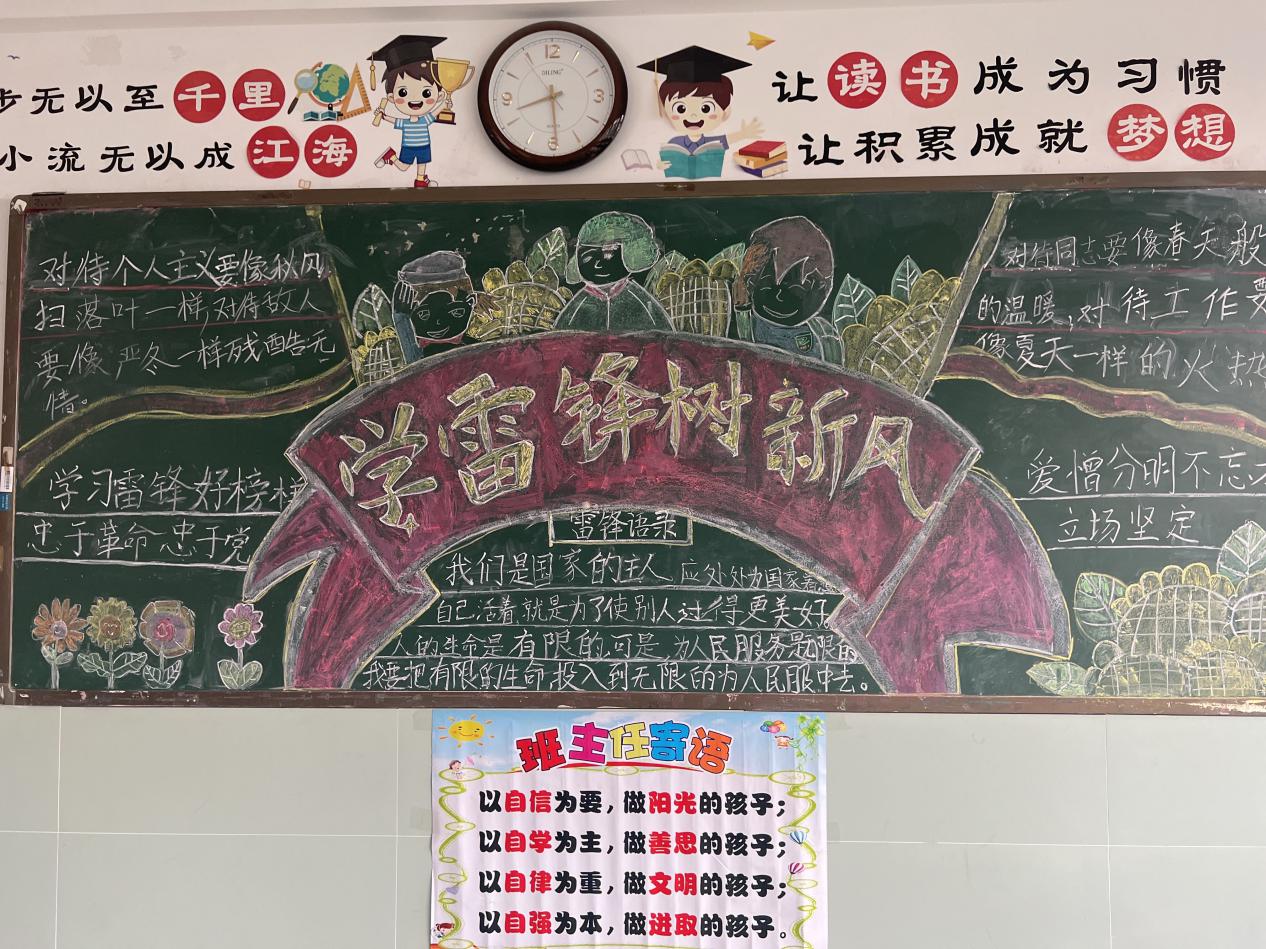 步无以至千里
小流无以成江海
DILING
12
3
6
9
让读书成为习惯
让积累成就梦想
对待个人主义要像秋风
扫落叶一样,对待敌人
要像严冬一样残酷无
情。
学习雷锋好榜样
忠于革命忠于党
学雷锋树新风
雷锋语录
我们是国家的主人,应处处为国家着想
自己活着,就是为了使别人过得更美好
人的生命是有限的,可是,为人民服务是无限的
我要把有限的生命,投入到无限的为人民服中去。
对待同志要像春天般
的温暖,对待工作要
像夏天一样的火热
爱憎分明不忘
立场坚定
班主任寄语
以自信为要,做阳光的孩子;
以自学为主,做善思的孩子;
以自律为重,做文明的孩子;
以自强为本,做进取的孩子。